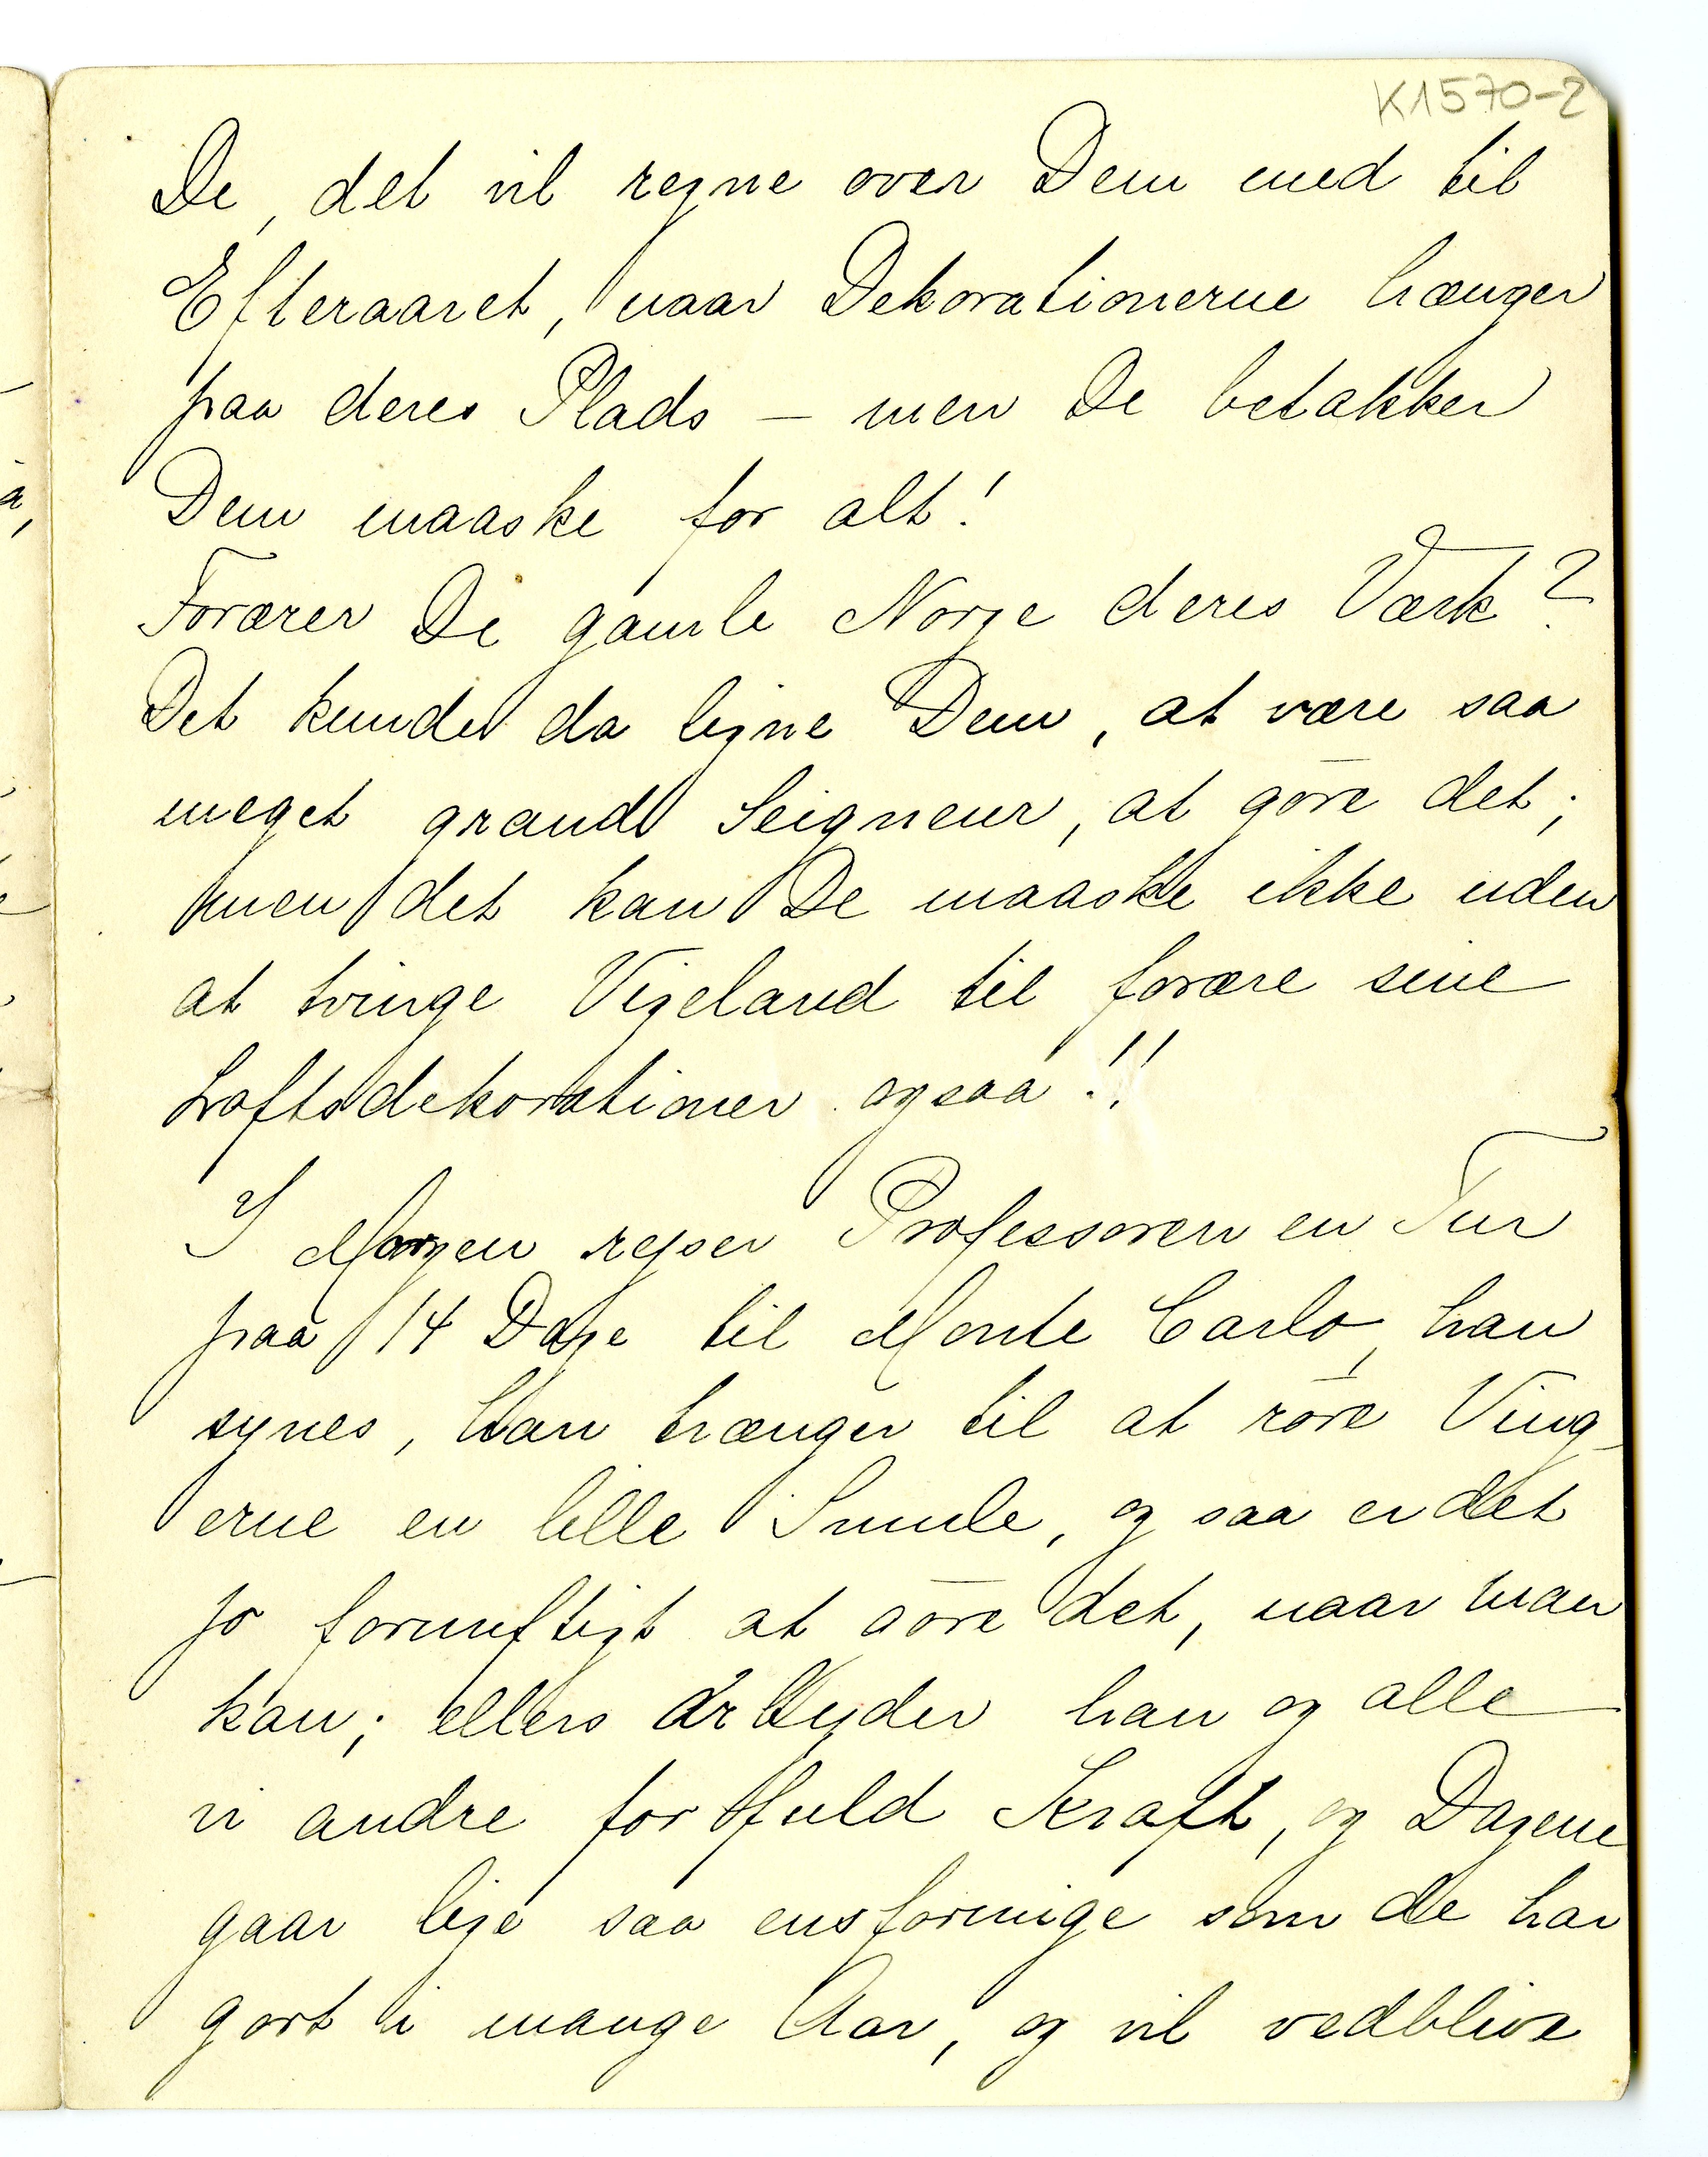 K1570-2
De, det vil regne over Dem med til
Efteraaret, naar Dekorationerne hænger
paa deres Plads – men De betakker
Dem maaske for alt!
Forærer De gamle Norge deres Værk?
Det kunde da ligne Dem, at være saa
meget grand Seigneur, at göre det;
men det kan De maaske ikke uden
at tvinge Vigeland til forære sine
Loftsdekorationer ogsaa!!
I Morgen rejser Professoren en Tur
paa 14 Dage til Monte Carlo, han
synes, han trænger til at röre Ving-
erne en lille Smule, og saa er det
jo fornuftigt at göre det, naar man
kan; ellers arbejder han og alle
vi andre for fuld Kraft, og Dagene
gaar lige saa ensformige som de har
gort i mange Aar, og vil vedblive